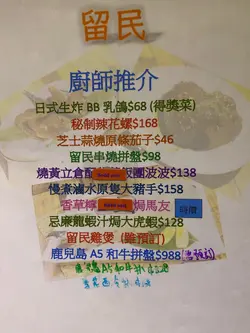 留民
廚師推介
日式生炸 BB 乳鴿$68 (得獎菜)
秘制辣花螺$168
芝士蒜燒原條茄子$46
留民串燒拼盤$98
燒黃立倉 飯團波波$138
慢煮滷水原隻大豬手$158
香草 焗馬友 時價
忌廉龍蝦汁焗大虎蝦$128
留民雞煲 (雖預訂)
鹿兒島 A5 和牛拼盤$988
A5 和牛